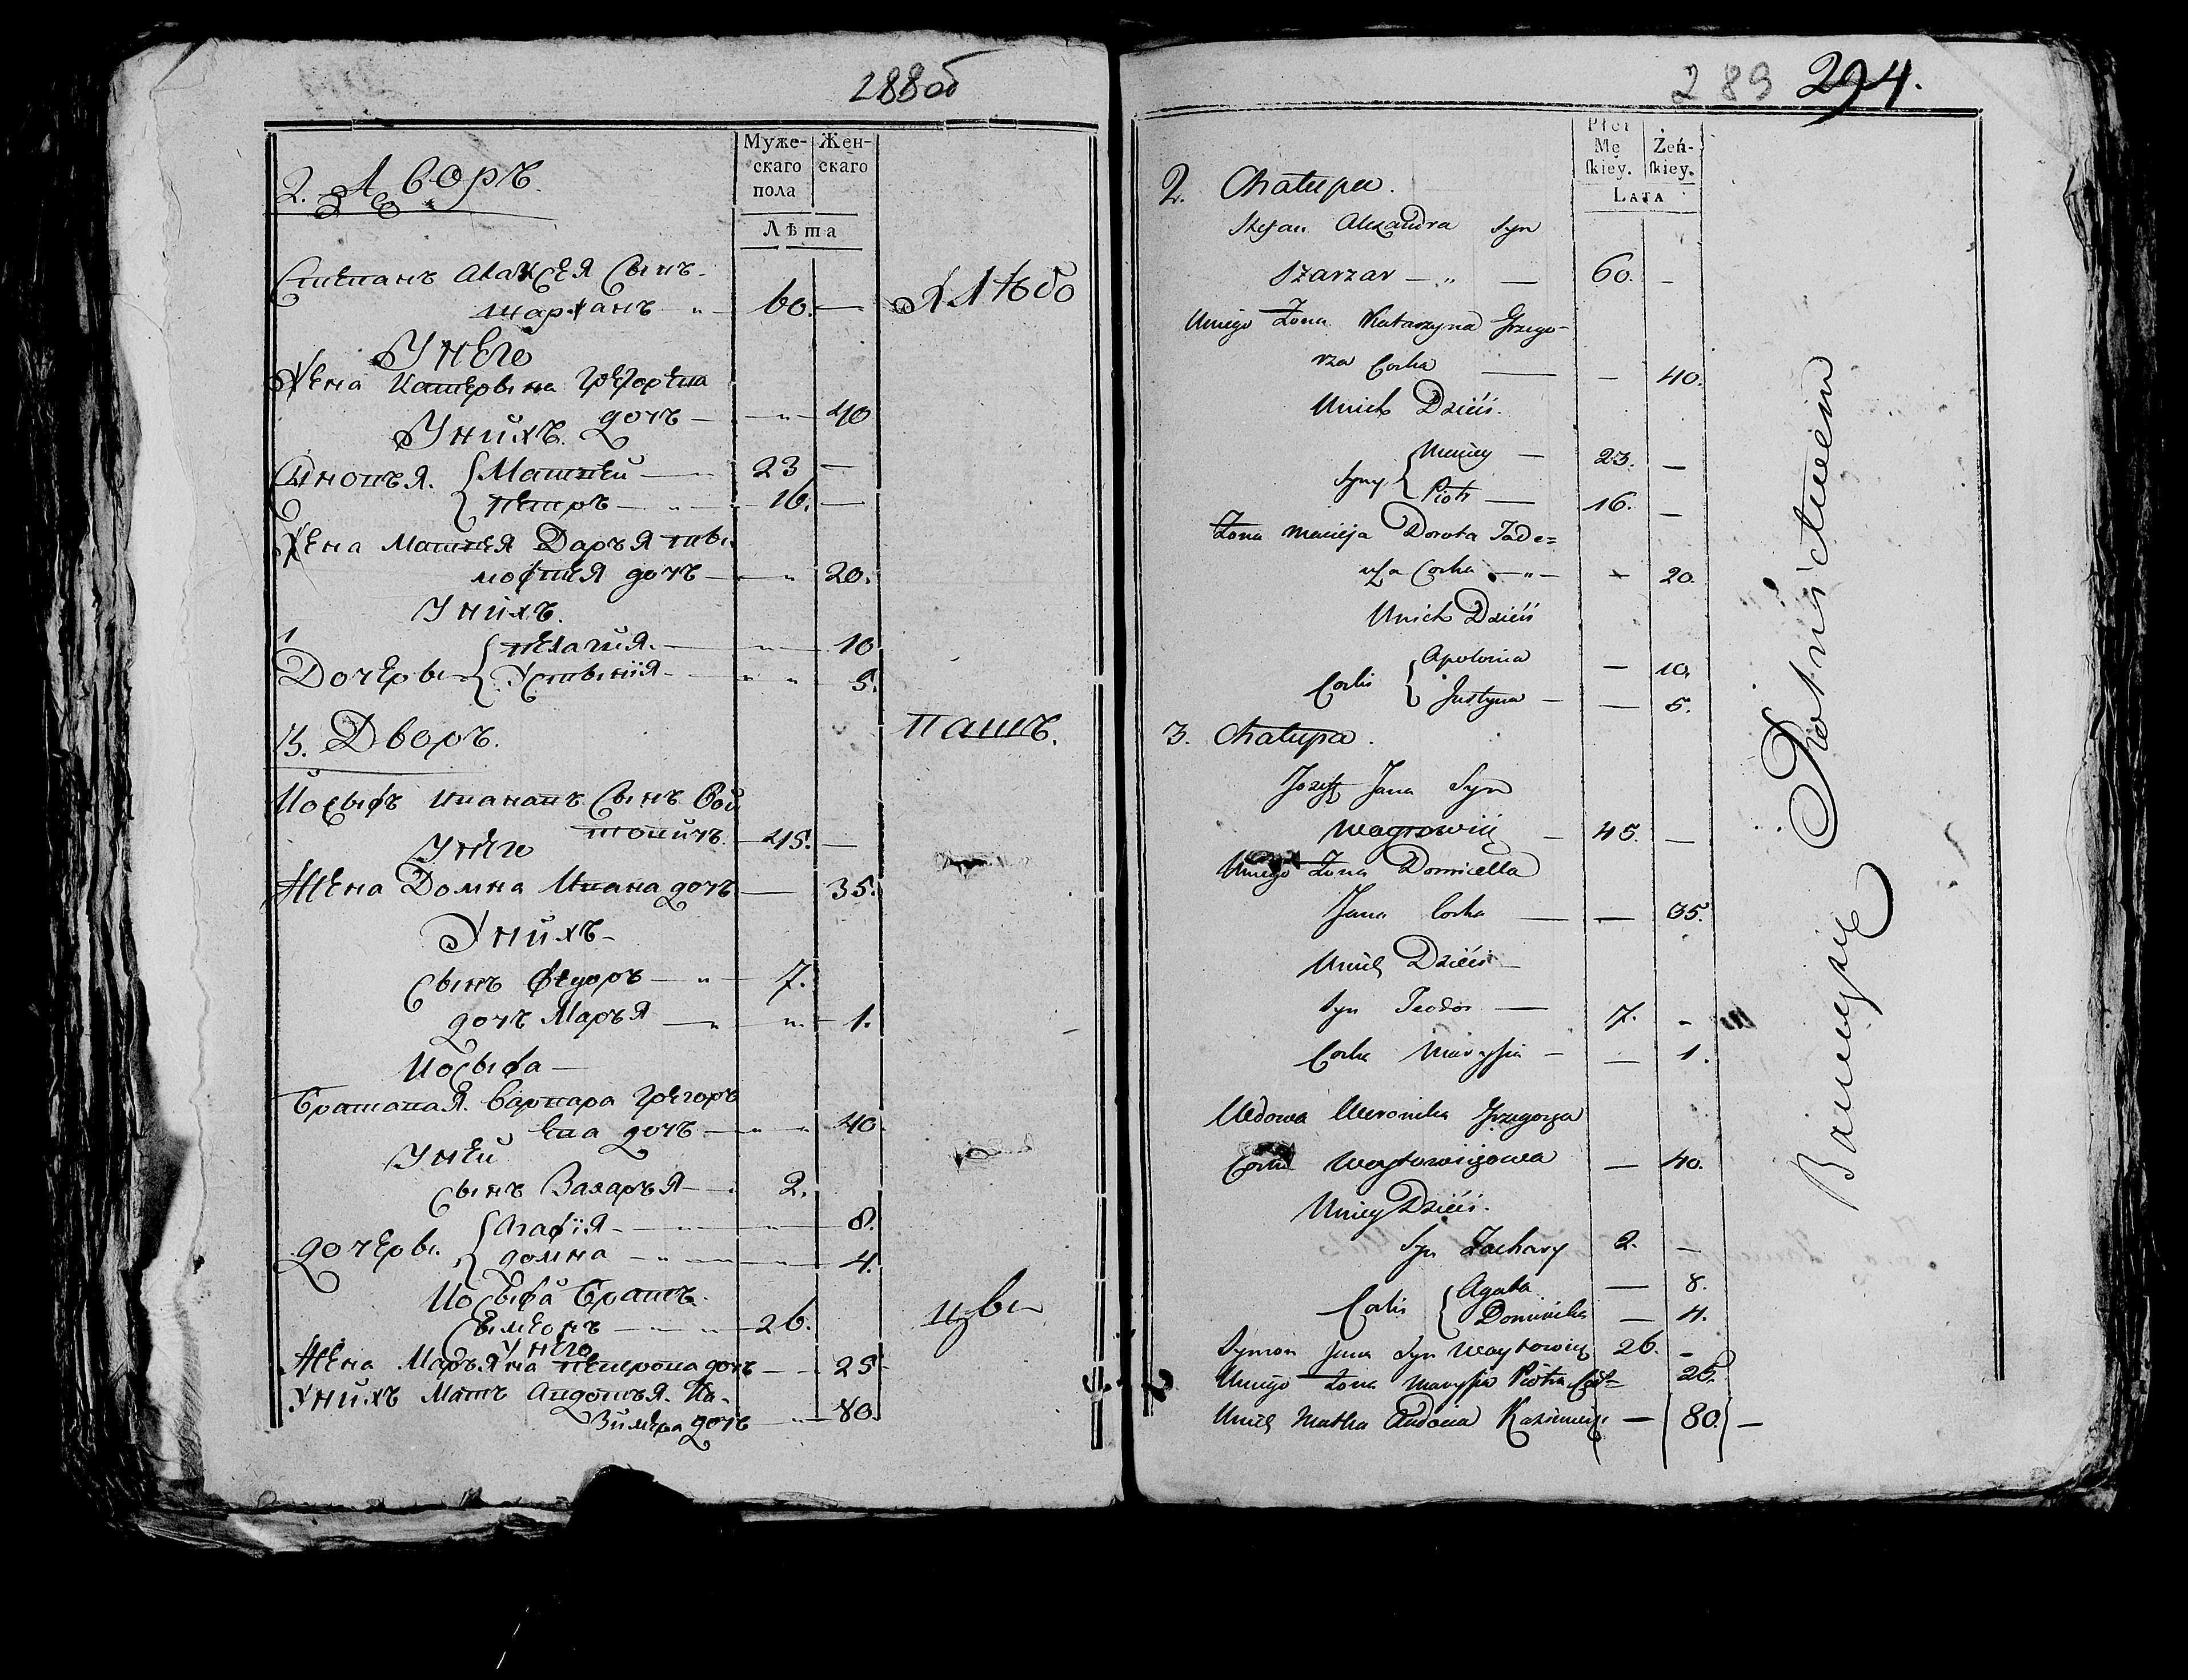 288об
Муже-
скаго
пола
Жен-
скаго
Лѣта
2. Дворъ.
Степанъ Алаксея Сынъ
шаржанъ " 60. — хлѣбо
Унего
Жена Катерына Грегорева
дочъ — " — 40
Унихъ
Сыновья. { Матвей — 23 —
{ Петръ — " — 16. —
Жена Матвея Даръя тиы
мофея дочъ — " 20.
Унихъ.
Дочеры { Пелагия. — " — 10
{ Устыния — " " 5.
3. Дворъ. пашъ.
Иосыфъ Ивановъ Сынъ Вой
товичъ. 45. —
Унего
Жена Домна Ивана дочъ — 35.
Унихъ
Сынъ Федоръ — " — 7.
дочъ Маръя — " " 1.
Иосыфа —
Братовая. Варвара Грегоръ
ева дочъ — " " 40
Уней
Сынъ Захаръя — " 2.
дочеры. { Агафія — " — 8.
{ домна — " — 4.
Иосыфа Братъ.
Сымеонъ — " — 26. цвы
Унего
Жена Маръяна Петрова дочъ — 25
Унихъ Мать Авдотья. Ка-
зимера дочъ " — 80.
289 294.
Płci
Mę
skiey.
Żeń-
skiey.
LATA
2. Chatupa.
Stefan Alexandra Syn
Szarzar — " — 60. —
Uniego Żona Katarzyna Grzego-
rza Corka — — 40.
Unich Dzieci.
Syny { Maciey — 23. —
{ Piotr — 16. —
Żona Macieja Dorota Tade=
usza Corka — " — 20.
Unich Dzieci
Corki { Apolonia — 10.
{ Justyna — — 5.
3. Chatupa.
Jozeff Jana Syn
Woytowicz — 45. —
Uniego Żona Domicella
Jana Corka — — 35.
Unich Dzieci —
Syn Teodor — 7. -
Corka Marysia — — 1.
Wdowa Weronika Grzegorza
Corka Woytowiczowa — 40.
Uniey Dzieci.
Syn Zachary 2. —
Corki { Agata — 8.
{ Dominika — 4.
Symon Jana Syn Woytowicz 26. —
Uniego Żona Marysia Piotra Cor= 25.
Unich Matka Audocia Kazimierz: — 80. —